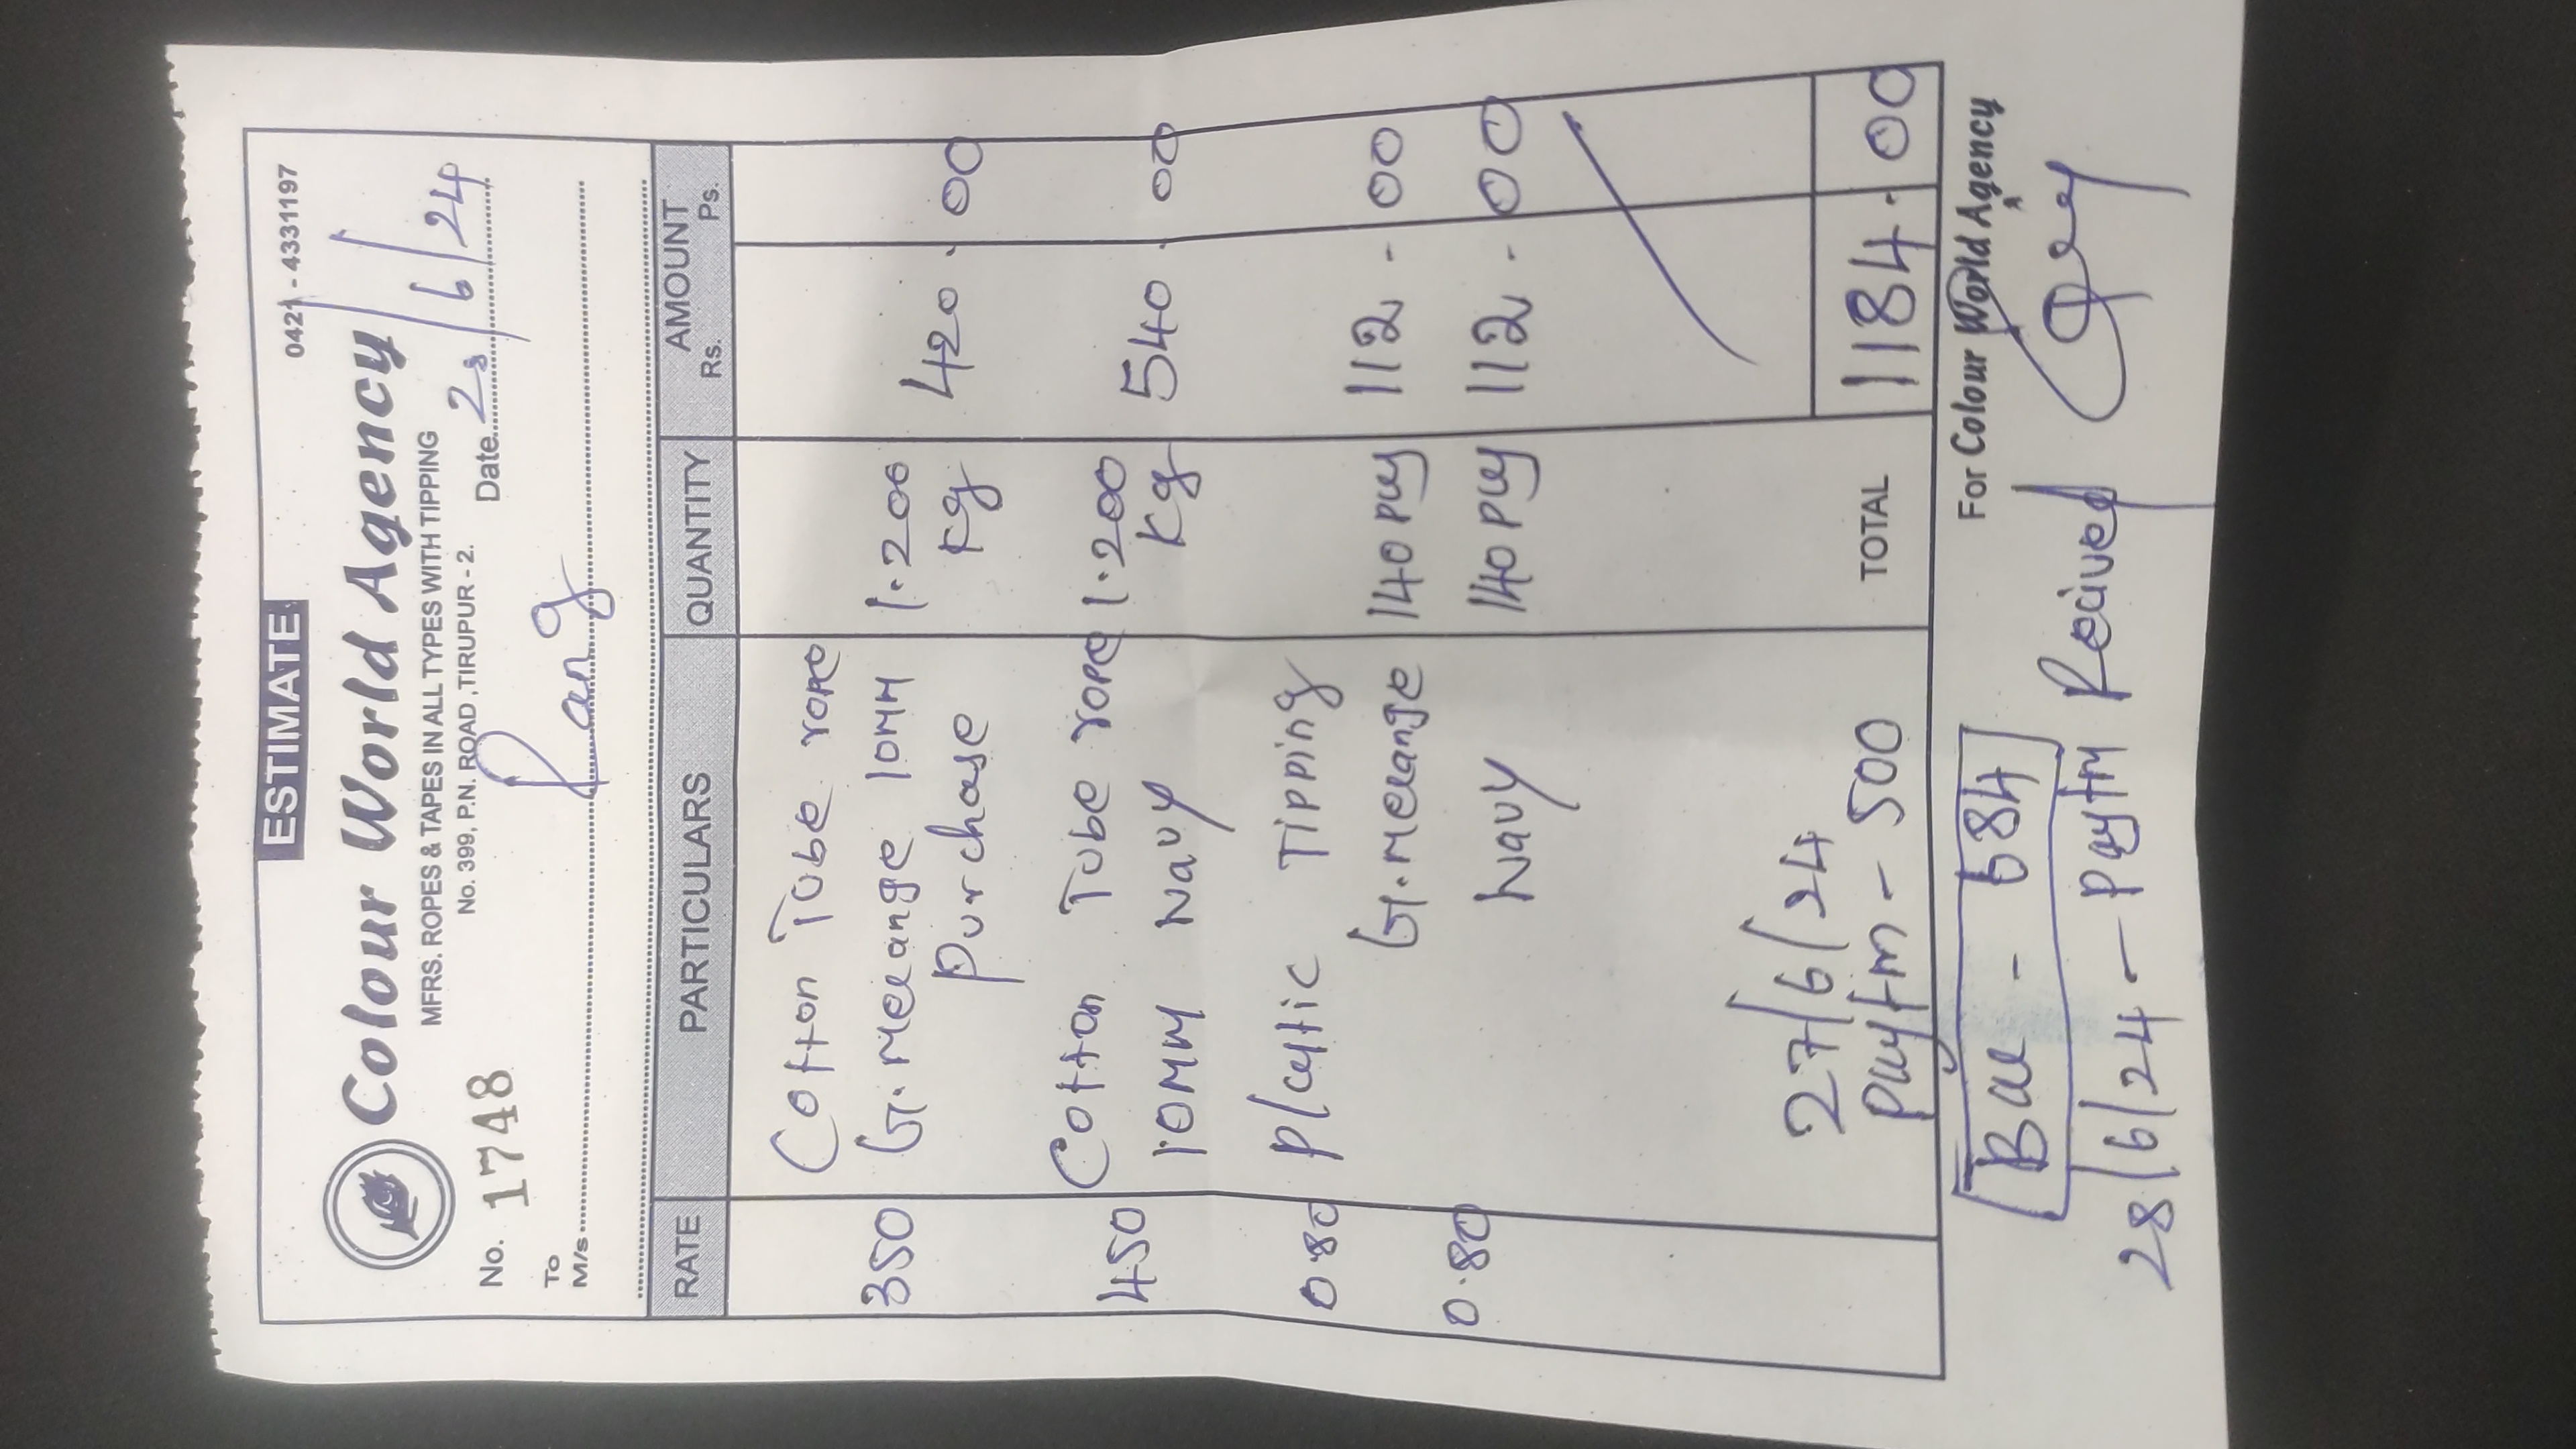 ESTIMATE
0421 - 4331197
Colour World Agency
MFRS. ROPES & TAPES IN ALL TYPES WITH TIPPING
No. 399, P.N. ROAD ,TIRUPUR - 2.
No. 1748 Date 28/6/24
To
M/s
RATE PARTICULARS QUANTITY AMOUNT
Rs. Ps.
Cotton Tube rope
350 G.Melange 10MM 1.200 420. 00
Purchase Kg
Cotton Tube rope 1.200
450 10MM Navy Kg 540. 00
Plastic Tipping
0.80 G.Melange 140 pcs 112 - 00
0.80 Navy 140 pcs 112 - 00
27/6/24
Paytm - 500
TOTAL 1184. 00
For Colour World Agency
Bal - 684
28/6/24 - Paytm Recived